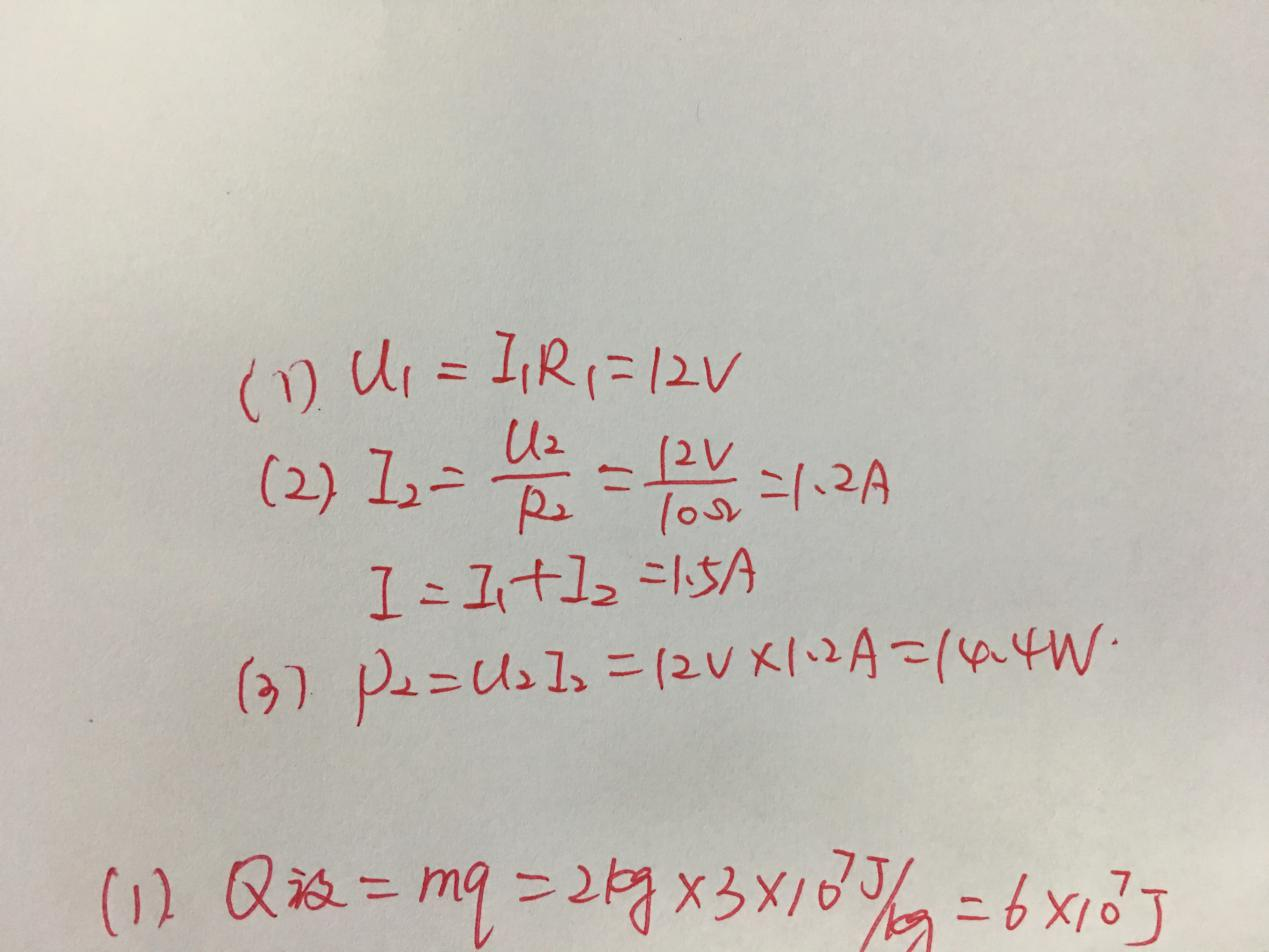 (1) U₁ = I₁R₁ = 12V
(2) I₂ = U₂/R₂ = 12V/10Ω = 1.2A
I = I₁+I₂ = 1.5A
(3) P₂ = U₂I₂ = 12V×1.2A = 14.4W.
(1) Q = mq = 2kg×3×10⁷J/kg = 6×10⁷J